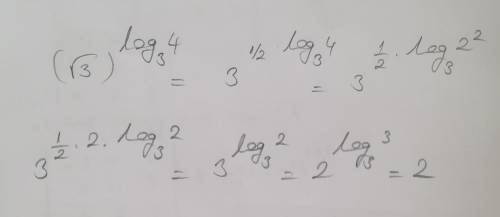 (√3)^(log₃4) = 3^(1/2 · log₃4) = 3^(1/2 · log₃2²)
3^(1/2 · 2 · log₃2) = 3^(log₃2) = 2^(log₃3) = 2